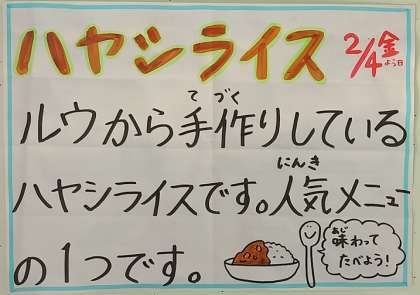 ハヤシライス
2/4金
ようび
てづく
ルウから手作りしている
にんき
ハヤシライスです。人気メニュー
の1つです。
あじ
味わって
たべよう!